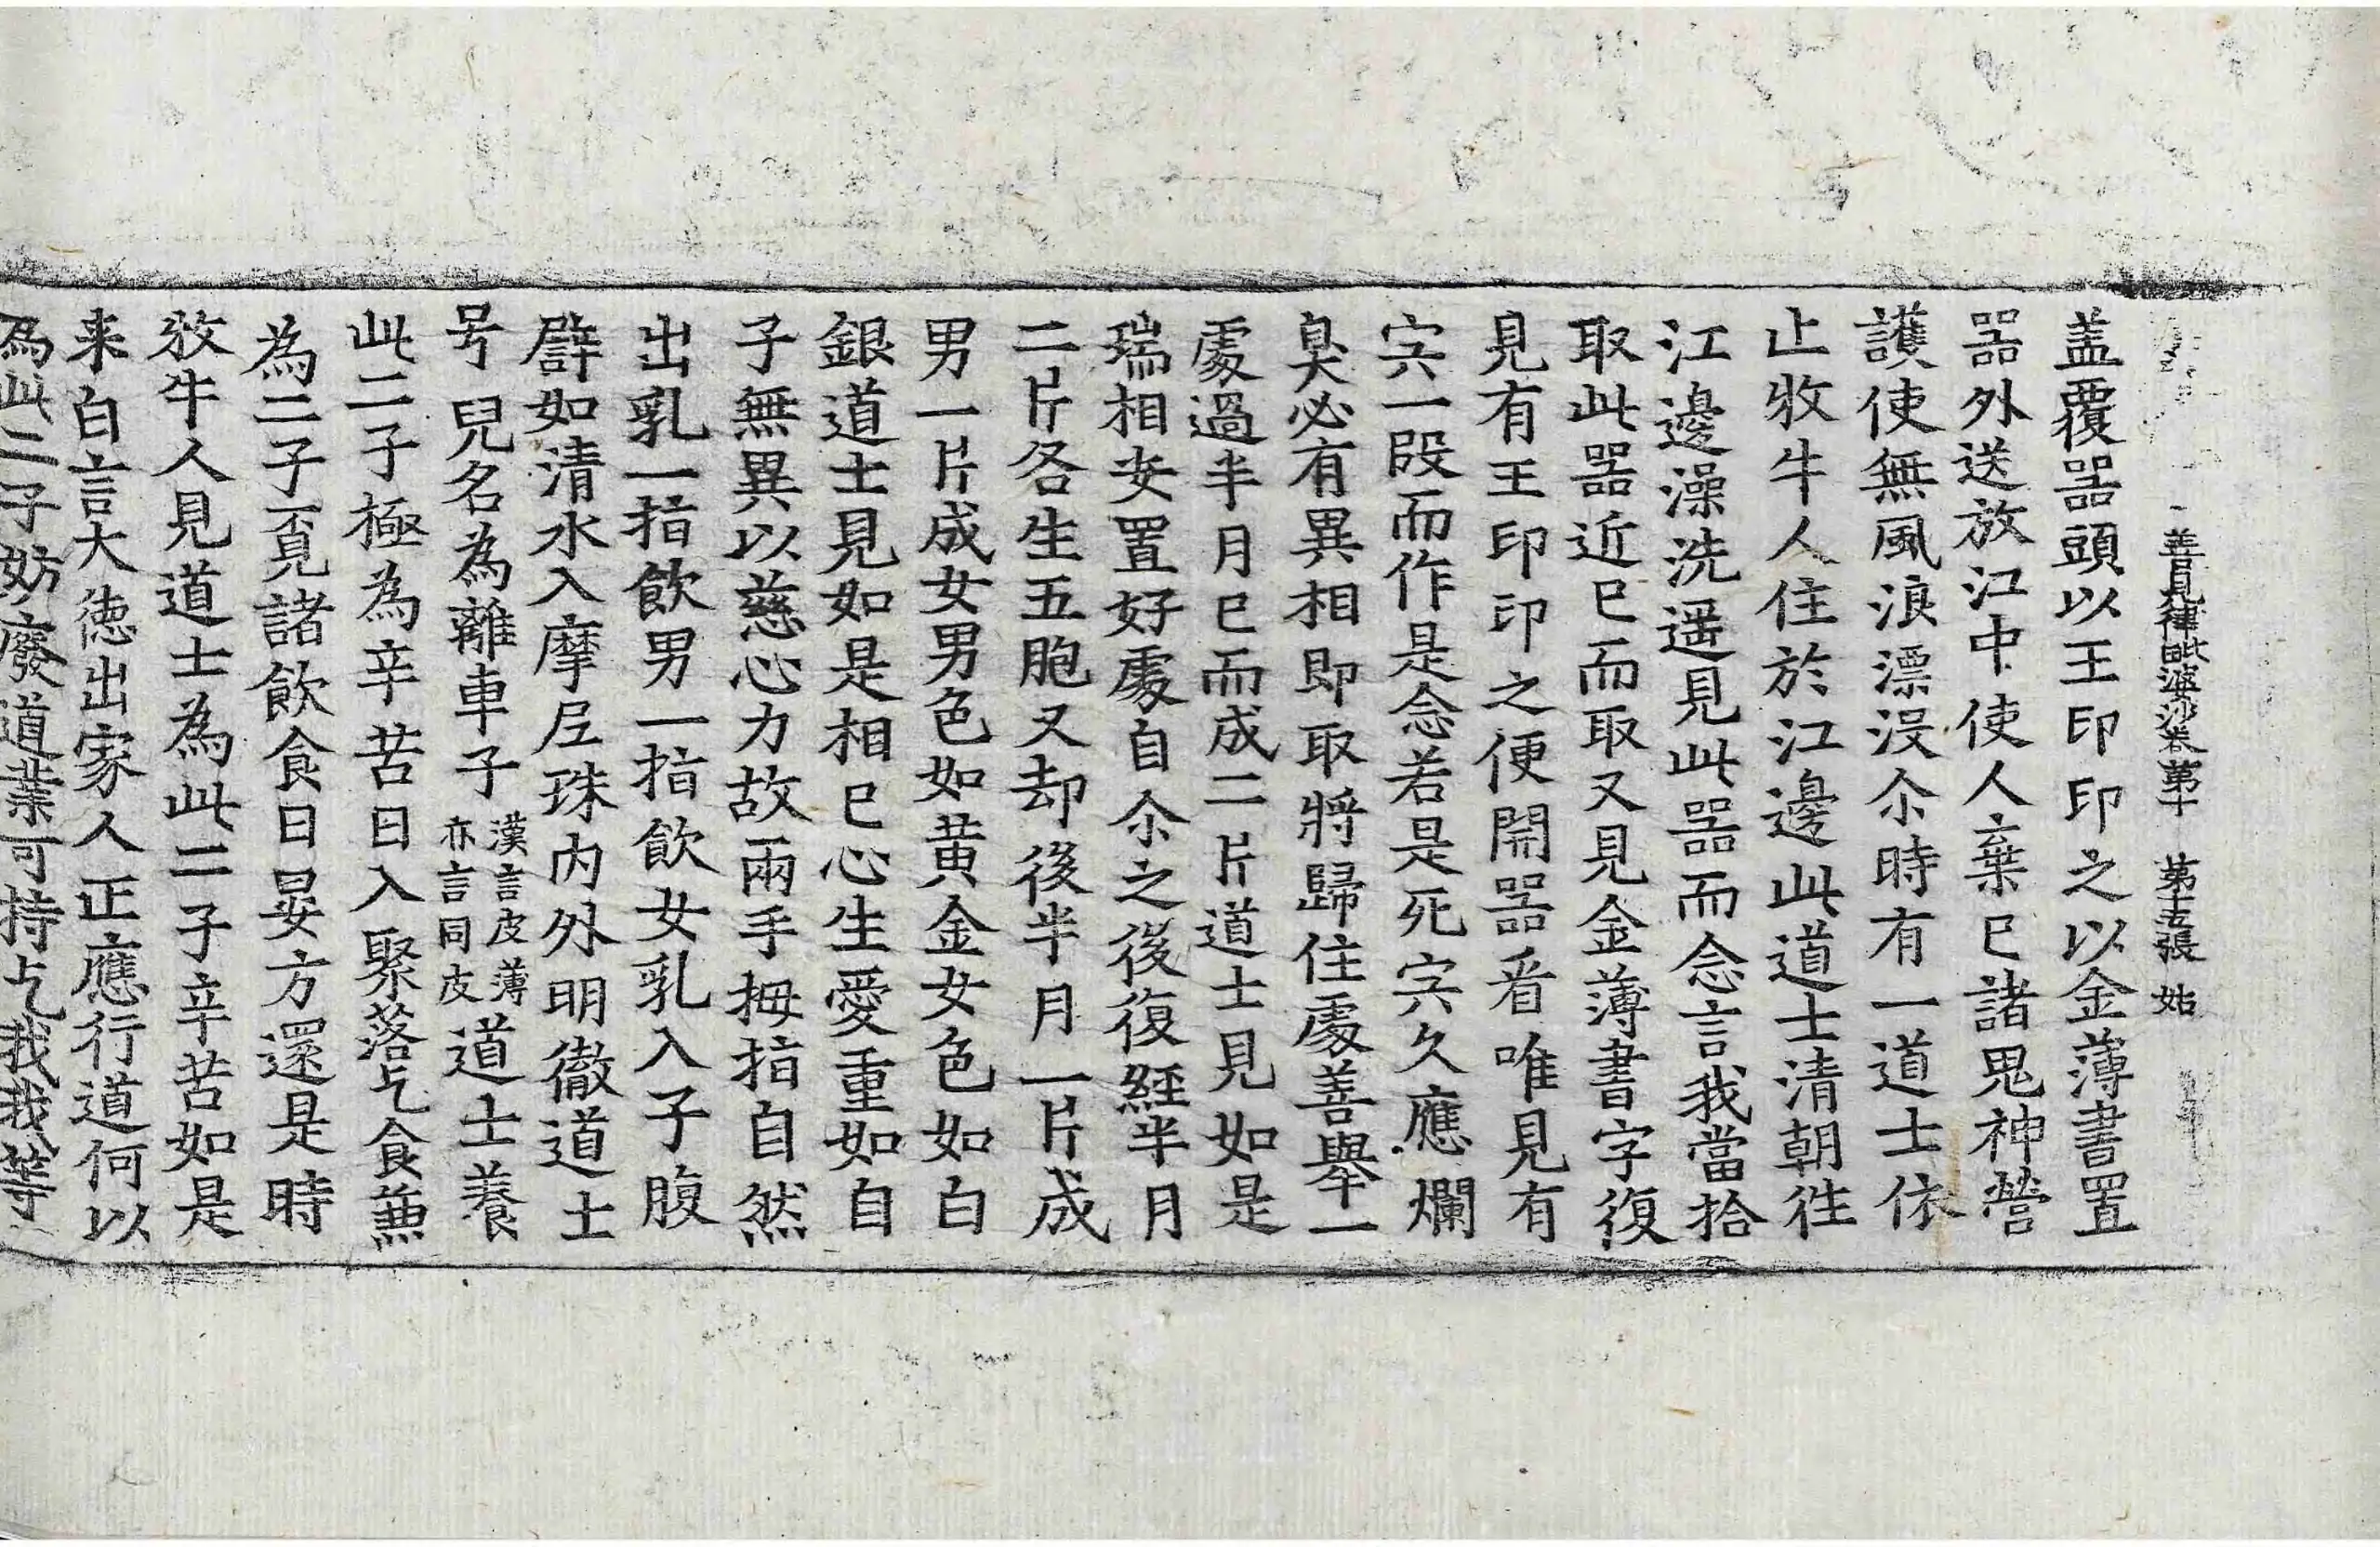 善見律毗婆沙卷第十 第十五張 姑
盖覆器頭以王印印之以金薄書置
器外送放江中使人棄已諸鬼神營
護使無風浪漂没尒時有一道士依
止牧牛人住於江邊此道士清朝往
江邊澡洗遥見此器而念言我當拾
取此器近已而取又見金薄書字復
見有王印印之便開器看唯見有
宍一段而作是念若是死宍久應爛
臭必有異相即取將歸住處善舉一
處過半月已而成二片道士見如是
瑞相安置好處自尒之後復經半月
二片各生五胞又却後半月一片成
男一片成女男色如黄金女色如白
銀道士見如是相已心生愛重如自
子無異以慈心力故兩手拇指自然
出乳一指飲男一指飲女乳入子腹
譬如清水入摩尼珠内外明徹道士
号兒名為離車子漢言皮薄亦言同皮道士養
此二子極為辛苦日入聚落乞食兼
為二子覓諸飲食日晏方還是時
牧牛人見道士為此二子辛苦如是
来白言大德出家人正應行道何以
為此二子妨廢道業可持乞我我等